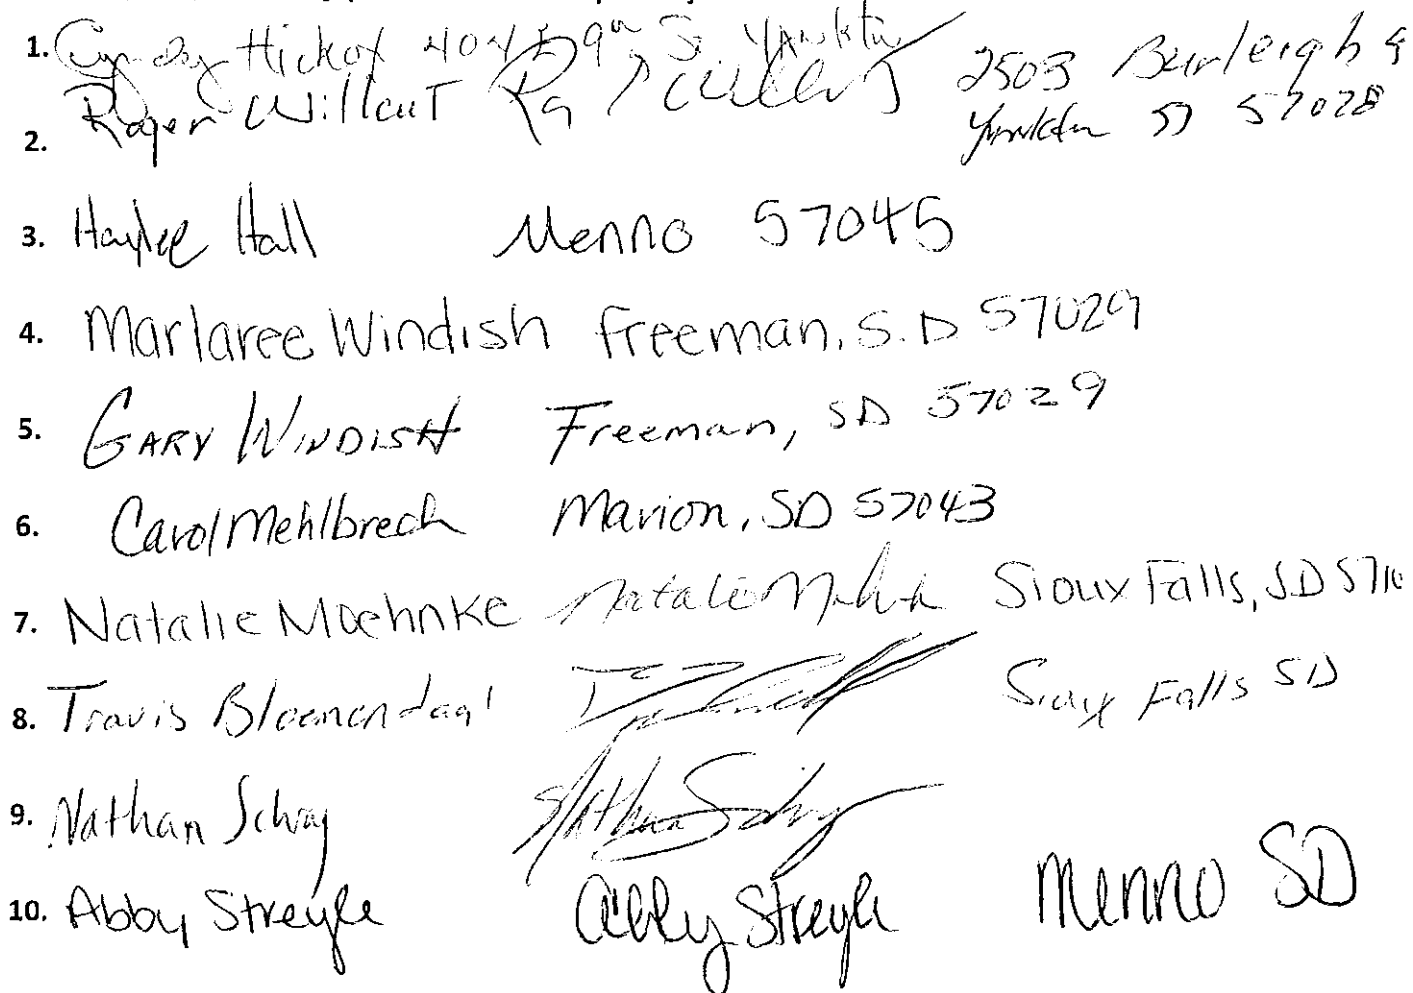 1. Cyndy Hickox 404 E 9th St Yankton
2. Roger Willcut 2503 Burleigh
Yankton SD 57078
3. Haylee Hall Menno 57045
4. Marlaree Windish Freeman, S.D 57029
5. GARY WINDISH Freeman, SD 57029
6. Carol Mehlbrech Marion, SD 57043
7. Natalie Moehnke Natalie Sioux Falls, SD 571
8. Travis Bloemendaal Sioux Falls SD
9. Nathan Schrag Nathan Schrag
10. Abby Streyle Abby Streyle Menno SD